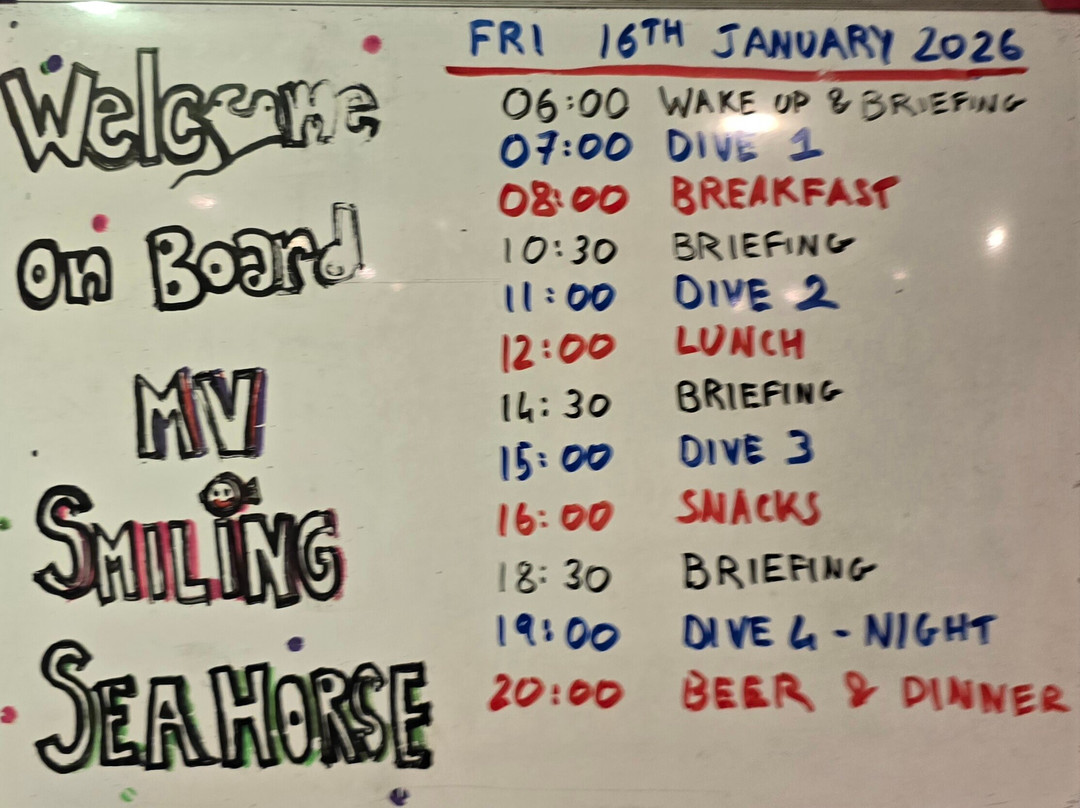 Welcome
On Board
MV
SMILING
SEAHORSE
FRI 16TH JANUARY 2026
06:00 WAKE UP & BRIEFING
07:00 DIVE 1
08:00 BREAKFAST
10:30 BRIEFING
11:00 DIVE 2
12:00 LUNCH
14:30 BRIEFING
15:00 DIVE 3
16:00 SNACKS
18:30 BRIEFING
19:00 DIVE 4 - NIGHT
20:00 BEER & DINNER